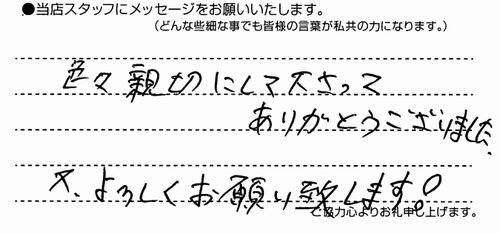 ●当店スタッフにメッセージをお願いいたします。
（どんな些細な事でも皆様の言葉が私共の力になります。）
色々親切にして下さって
ありがとうございました。
又、よろしくお願い致します!
ご協力心よりお礼申し上げます。